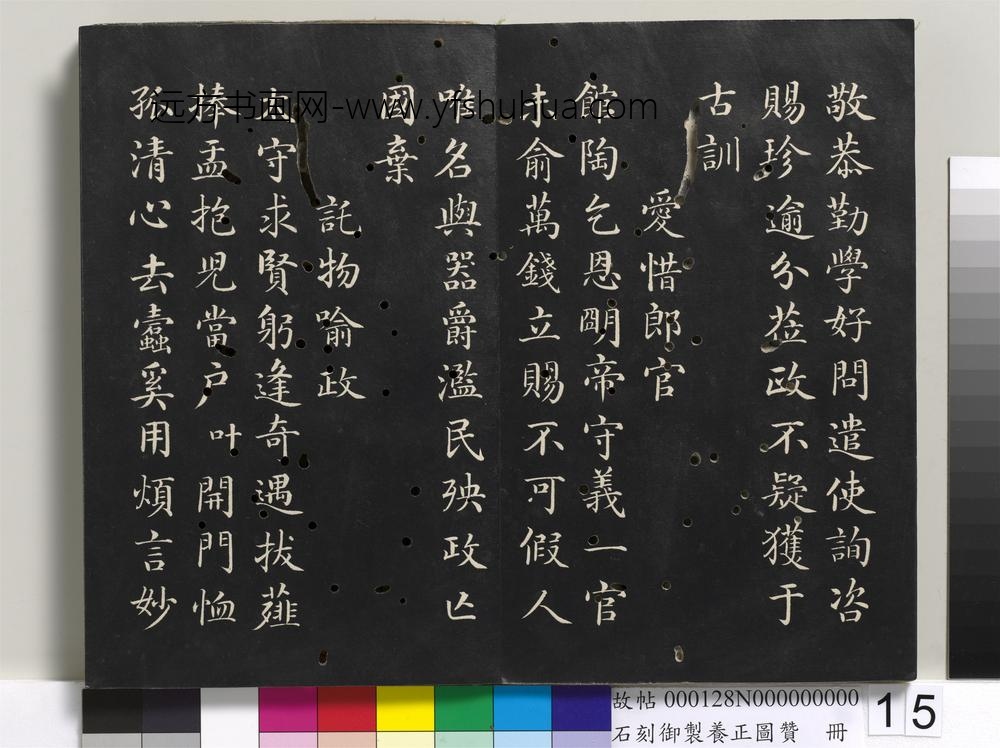 敬恭勤學好問遣使詢咨
賜珍逾分蒞政不疑獲于
古訓
愛惜郎官
館陶乞恩明帝守義一官
未俞萬錢立賜不可假人
唯名與器爵濫民殃政亾
國棄
託物喻政
守求賢躬逢奇遇拔薤
捧盂抱児當户叶開門恤
孤清心去蠹奚用煩言妙
远方书画网-www.yfshuhua.com
故帖 000128N000000000
石刻御製養正圖贊 冊
15